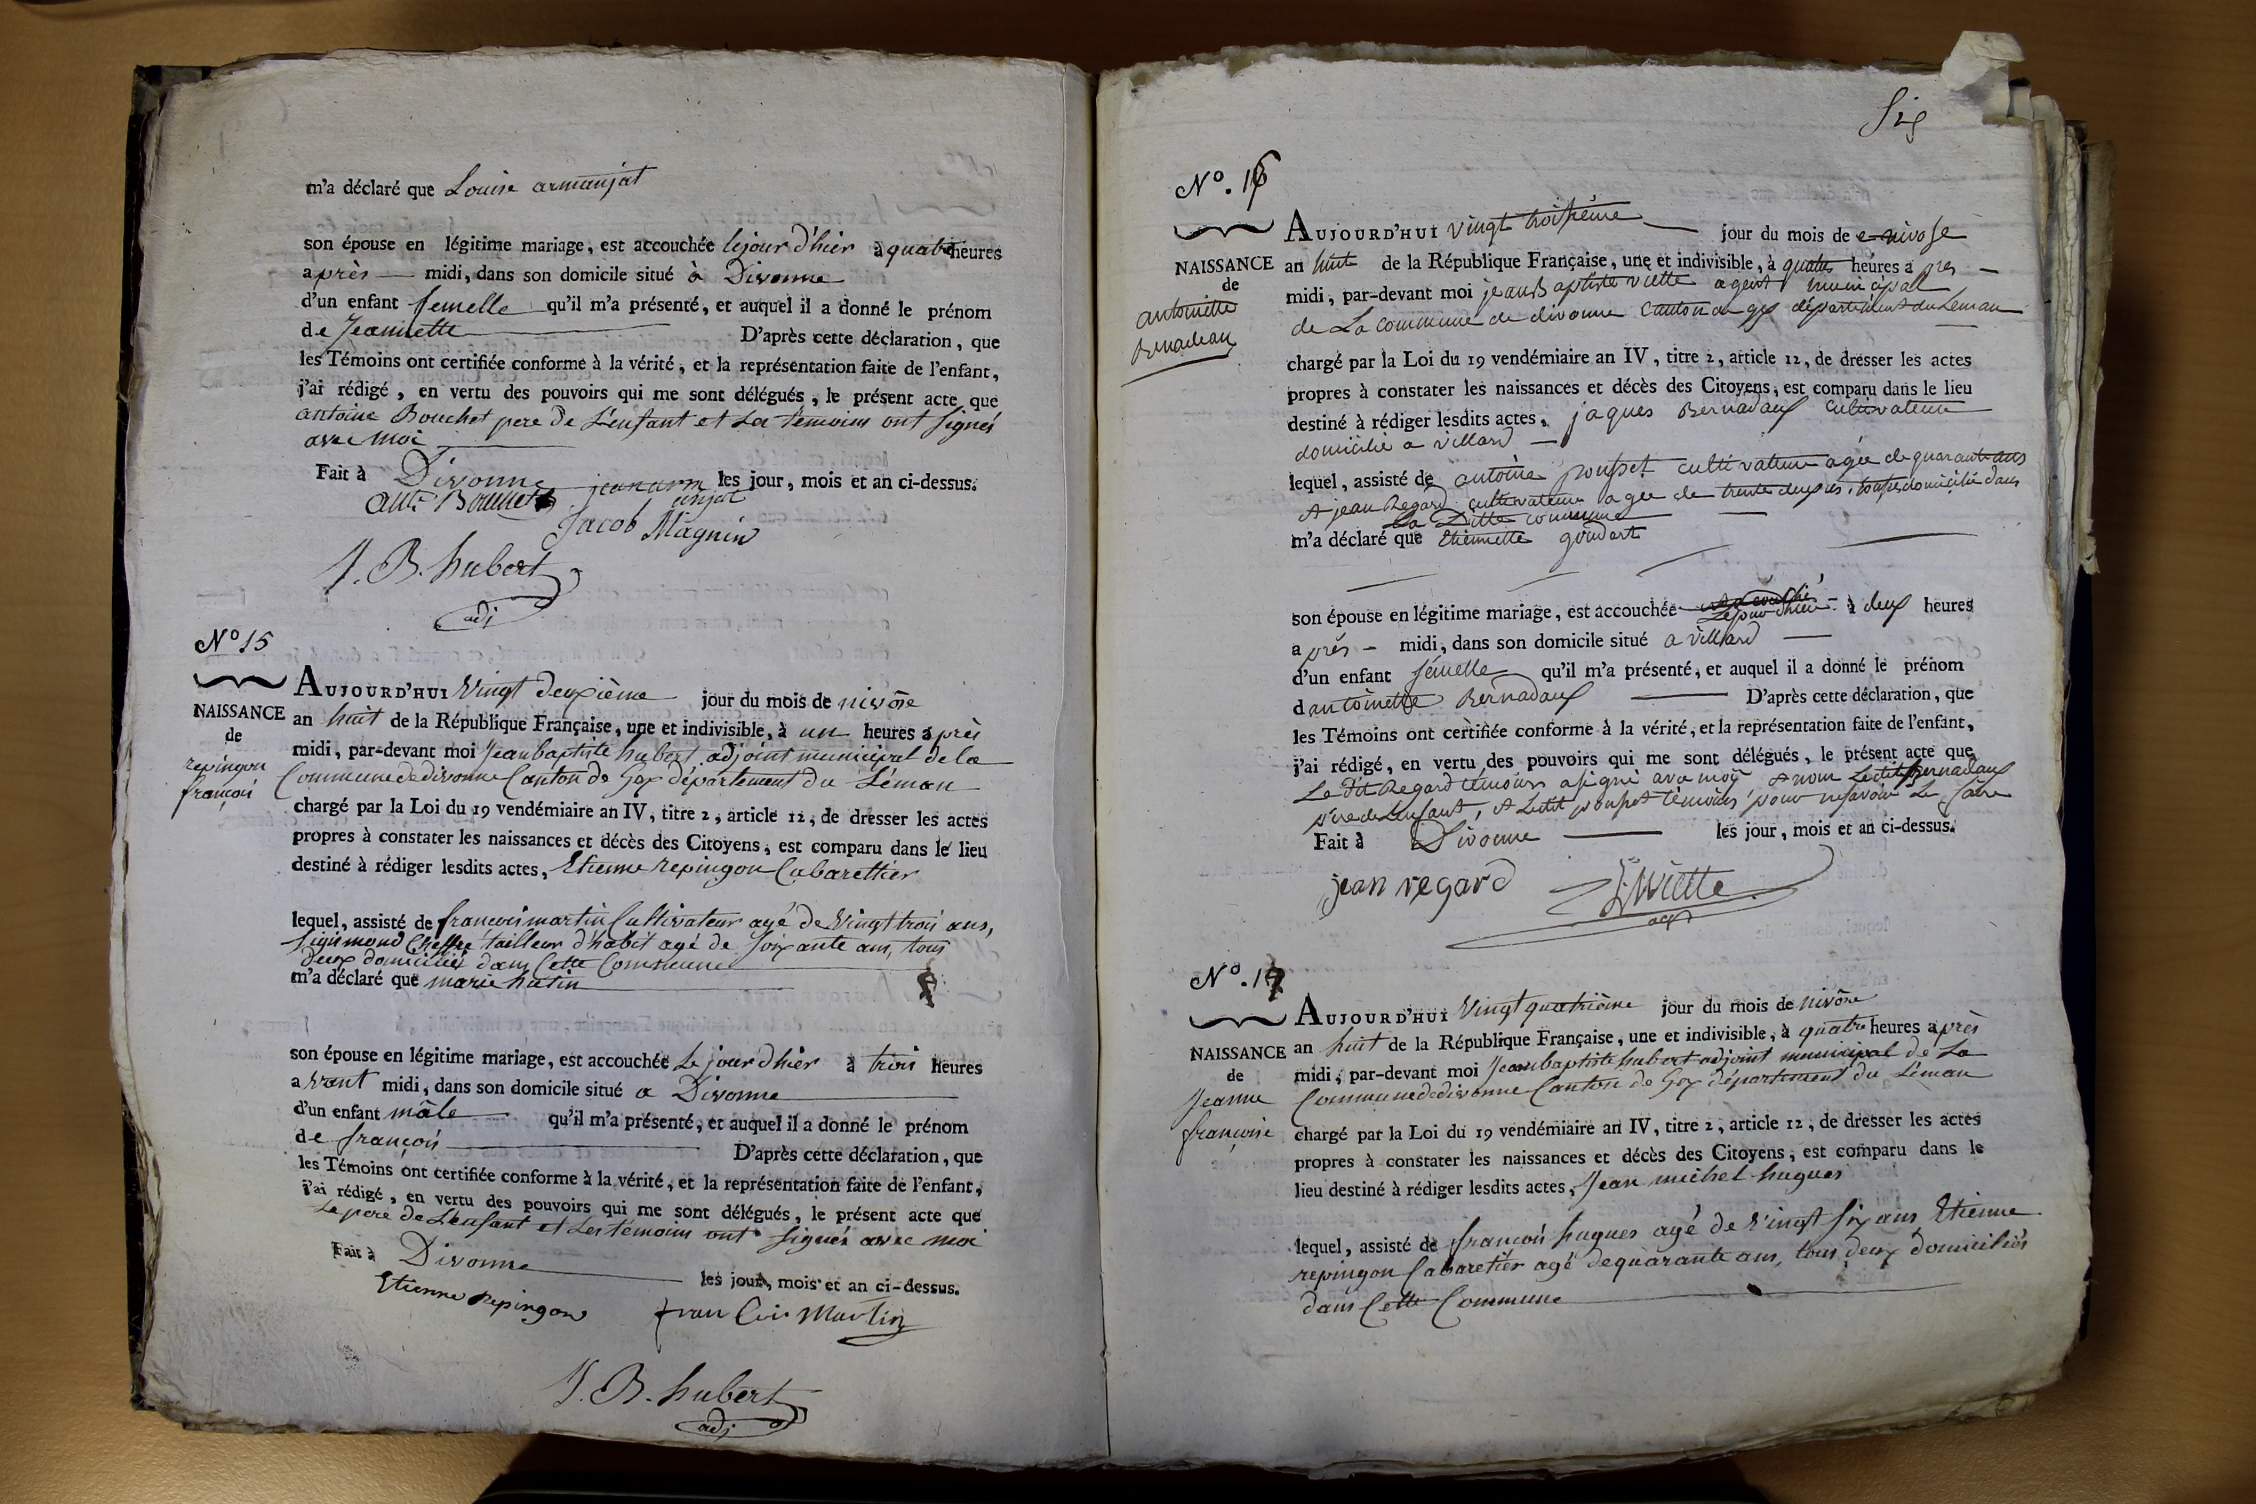 m'a déclaré que Louise armanjat
son épouse en légitime mariage, est accouchée le jour d'hier à quatre heures
après midi, dans son domicile situé à Divonne
d'un enfant femelle qu'il m'a présenté, et auquel il a donné le prénom
de Jeannette D'après cette déclaration, que
les Témoins ont certifiée conforme à la vérité, et la représentation faite de l'enfant,
j'ai rédigé, en vertu des pouvoirs qui me sont délégués, le présent acte que
antoine Bouchet pere de L'enfant et Les témoins ont signés
avec moi
Fait à Divonne les jour, mois et an ci-dessus.
jean arm
anjat
Jacob Magnin
J. B. hubert
adj
Nº 15
NAISSANCE
de
repingon
françois
AUJOURD'HUI Vingt deuxième jour du mois de nivôse
an huit de la République Française, une et indivisible, à un heures après
midi, par-devant moi Jean baptiste hubert adjoint municipal de la
Commune de divonne Canton de Gex département du Léman
chargé par la Loi du 19 vendémiaire an IV, titre 2, article 12, de dresser les actes
propres à constater les naissances et décès des Citoyens, est comparu dans le lieu
destiné à rédiger lesdits actes, Etienne repingon Cabarettier
lequel, assisté de francois martin Cultivateur agé de Vingt trois ans,
sigismond tailleur d'habit agé de soixante ans, tous
deux domiciliés dans Cette Commune
m'a déclaré que marie hutin
son épouse en légitime mariage, est accouchée Le jour d'hier à trois heures
avant midi, dans son domicile situé a Divonne
d'un enfant mâle qu'il m'a présenté, et auquel il a donné le prénom
de françois D'après cette déclaration, que
les Témoins ont certifiée conforme à la vérité, et la représentation faite de l'enfant,
j'ai rédigé, en vertu des pouvoirs qui me sont délégués, le présent acte que
Le pere de L'enfant et Les témoins ont signés avec moi
Fait à Divonne les jour, mois et an ci-dessus.
Etienne repingon
fran Cois Martin
J. B. hubert
adj
Six
Nº. 16
NAISSANCE
de
antoinette
Bernadeau
AUJOURD'HUI vingt troisième jour du mois de nivose
an huit de la République Française, une et indivisible, à quatre heures apres
midi, par-devant moi jean Baptiste viette agent municipal
de La commune de divonne Canton de gex département du Leman
chargé par la Loi du 19 vendémiaire an IV, titre 2, article 12, de dresser les actes
propres à constater les naissances et décès des Citoyens, est comparu dans le lieu
destiné à rédiger lesdits actes, jaques Bernadaux cultivateur
domicilié a villard
lequel, assisté de antoine pousset cultivateur agée de quarante ans
et jean Regard cultivateur agee de trente deux domicilié dans
La Ditte commune
m'a déclaré que Etiennette goudart
son épouse en légitime mariage, est accouchée Le jour d'hier à deux heures
après midi, dans son domicile situé a villard
d'un enfant femelle qu'il m'a présenté, et auquel il a donné le prénom
d'antoinette Bernadaux D'après cette déclaration, que
les Témoins ont certifiée conforme à la vérité, et la représentation faite de l'enfant,
j'ai rédigé, en vertu des pouvoirs qui me sont délégués, le présent acte que
Le dit Regard témoins a signé avec moy et non Ledit Bernadaux
père de L'enfant, et Ledit pousset témoins pour ne savoir Le faire
Fait à Divonne les jour, mois et an ci-dessus.
jean regard
Viette
agt
Nº. 17
NAISSANCE
de
Jeanne
françoise
AUJOURD'HUI Vingt quatrième jour du mois de nivôse
an huit de la République Française, une et indivisible, à quatre heures après
midi, par-devant moi Jean baptiste hubert adjoint municipal de La
Commune de divonne Canton de Gex département du Léman
chargé par la Loi du 19 vendémiaire an IV, titre 2, article 12, de dresser les actes
propres à constater les naissances et décès des Citoyens, est comparu dans le
lieu destiné à rédiger lesdits actes, Jean michel hugues
lequel, assisté de françois hugues agé de Vingt six ans Etienne
repingon Cabaretier agé de quarante ans, tous deux domiciliés
dans Cette Commune